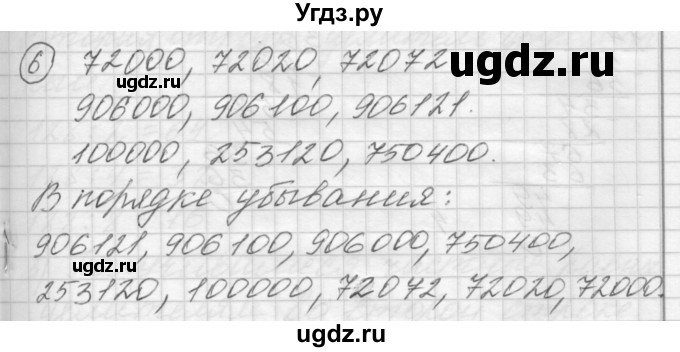 Угдз.ру
6 72000, 72020, 72072
ugdz.ru
ugdz.ru
906000, 906100, 906121.
100000, 253120, 750400.
В порядке убывания:
906121, 906100, 906000, 750400,
ugdz.ru
253120, 100000, 72072, 72020, 72000.
ugdz.ru